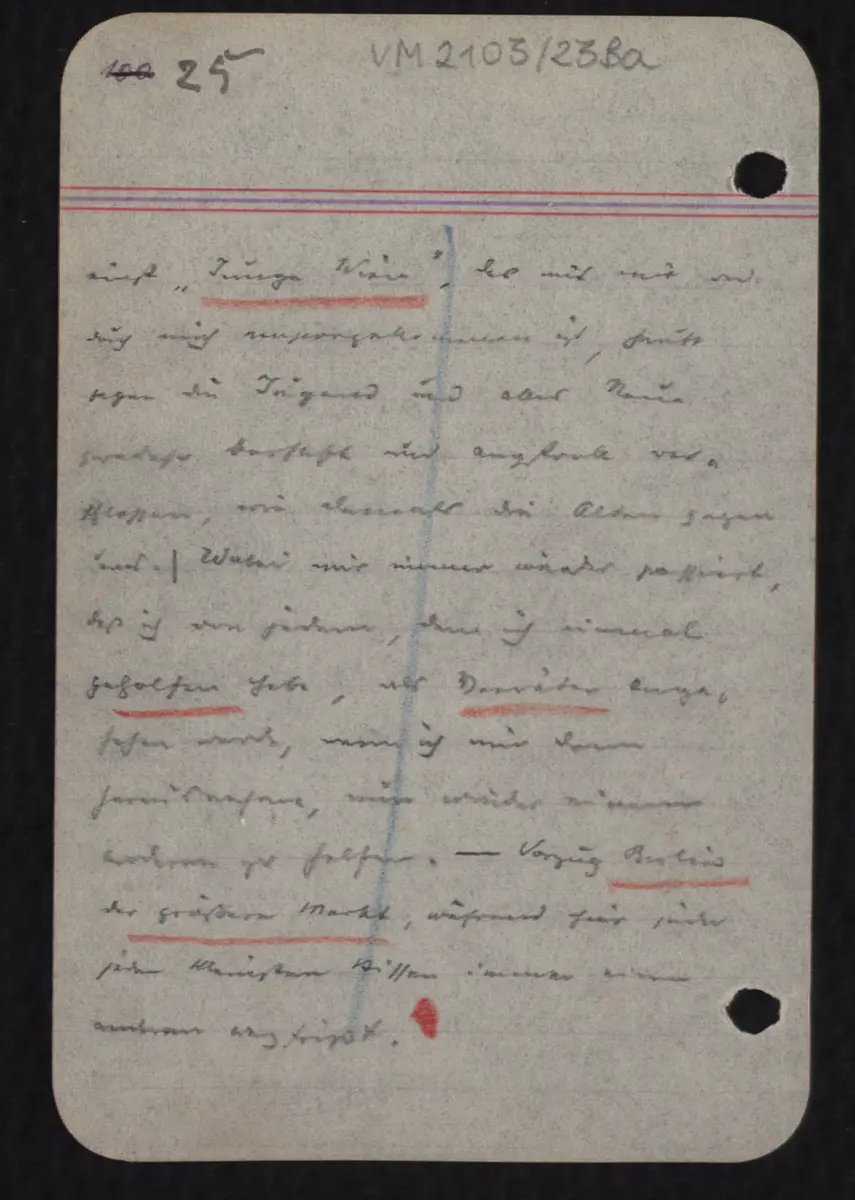 100 25 VM 2103/23Ba
einst „Junge Wien", das mit mir und
durch mich emporgekommen ist, heute
gegen die Jugend und alles Neue
geradeso boshaft und angstvoll ver-
schlossen, wie damals die Alten gegen
uns. | Wobei mir immer wieder passiert,
daß ich von jedem, dem ich einmal
geholfen habe, als Verräter ange-
sehen werde, wenn ich mir dann
herausnehme, nun wieder einem
anderen zu helfen. — Vorzug Berlins
der größere Markt, während hier jeder
jeden kleinsten Bissen immer einem
anderen wegfrißt.